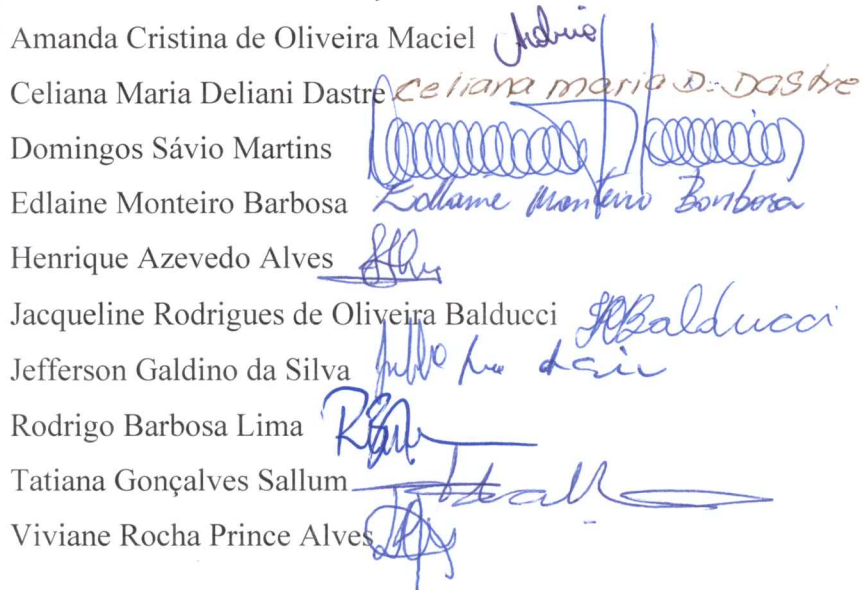 Amanda Cristina de Oliveira Maciel
Celiana Maria Deliani Dastre Celiana maria D. Dastre
Domingos Sávio Martins
Edlaine Monteiro Barbosa Edlaine Monteiro Barbosa
Henrique Azevedo Alves
Jacqueline Rodrigues de Oliveira Balducci JRBalducci
Jefferson Galdino da Silva
Rodrigo Barbosa Lima
Tatiana Gonçalves Sallum
Viviane Rocha Prince Alves